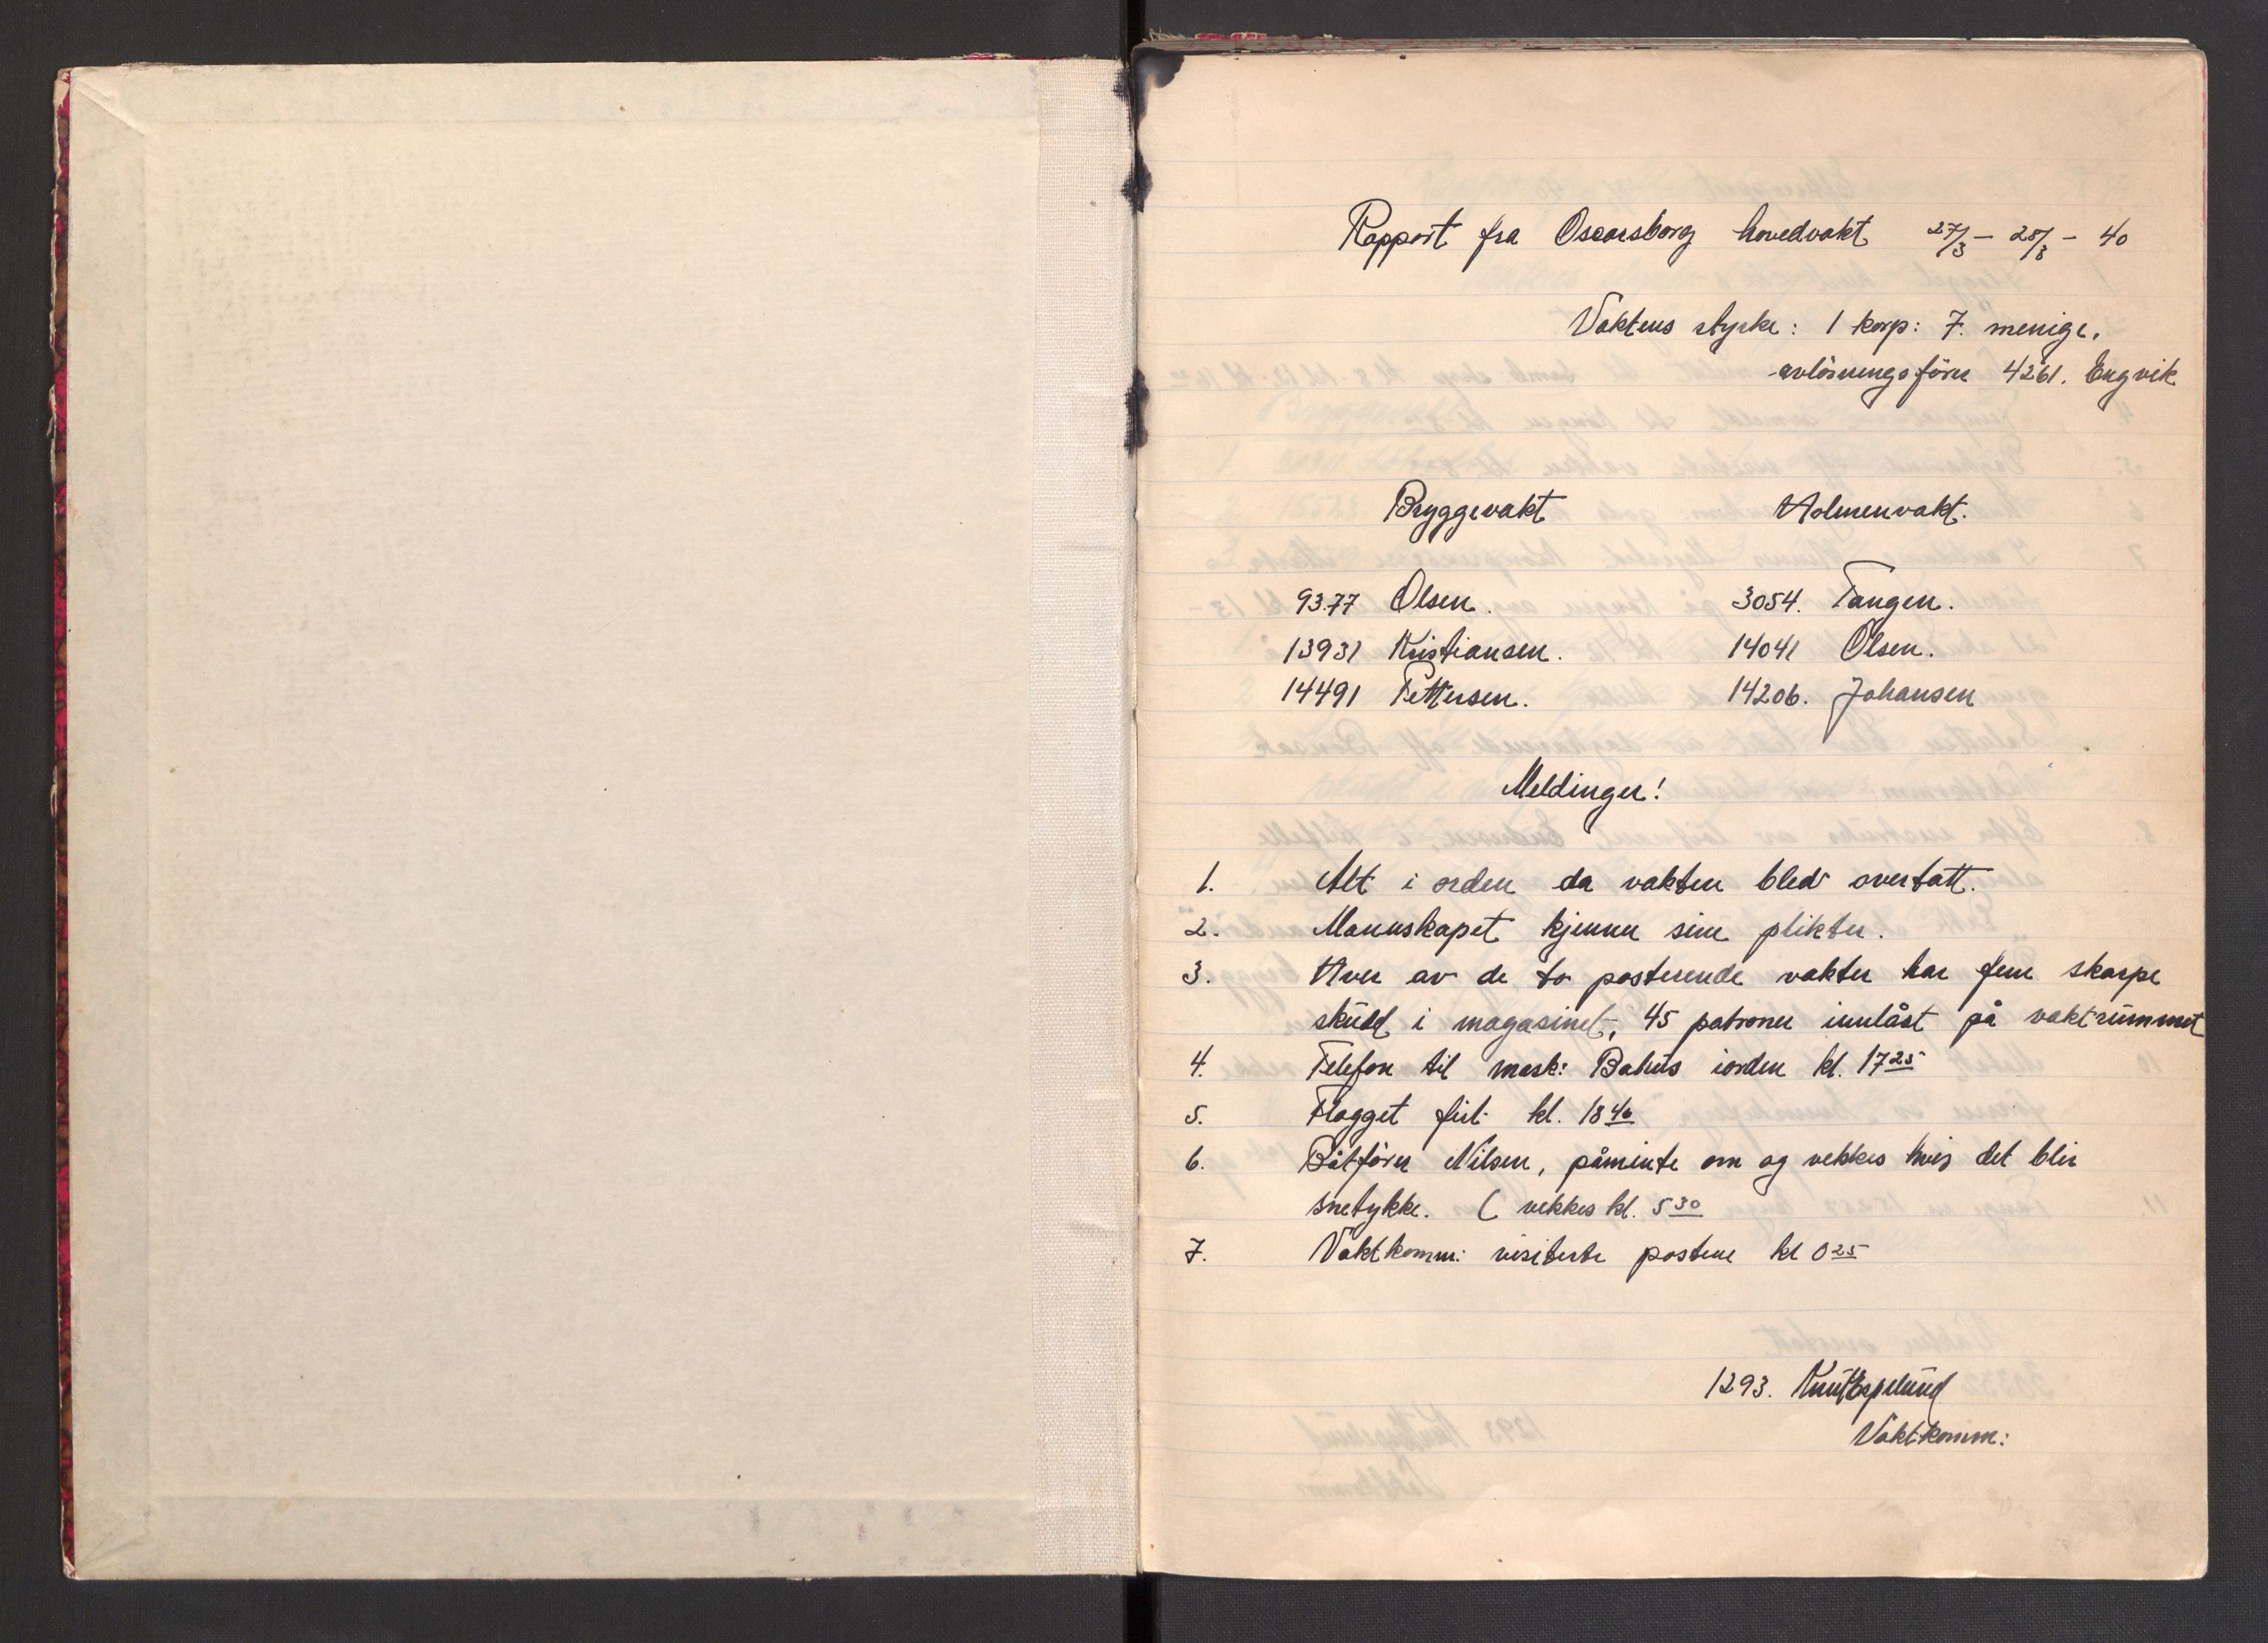 Rapport fra Oscarsborg hovedvakt 27/3 - 28/3 - 40
Vaktens styrke: 1 korp: 7. menige.
avlösningsförer 4261. Engvik
Bryggevakt Holmenvakt.
9377 Olsen. 3054. Tangen.
13931 Kristiansen. 14041 Olsen.
14491 Pettersen. 14206. Johansen
Meldinger!
1. Alt i orden da vakten blev overtatt.
2. Mannskapet kjenner sine plikter.
3. Hver av de to posterende vakter har fem skarpe
skudd i magasinet, 45 patroner innlåst på vaktrummet
4. Telefon til mask: Bahus iorden kl. 17 25
5. Flagget firt kl. 18 40
6. Båtförer Nilsen, påminte om og vekkes hvis det blir
snetykke. ( vekkes kl. 5 30
7. Vaktkomm: visiterte postene kl 0 25
1293. Knut Espelund
Vaktkomm: